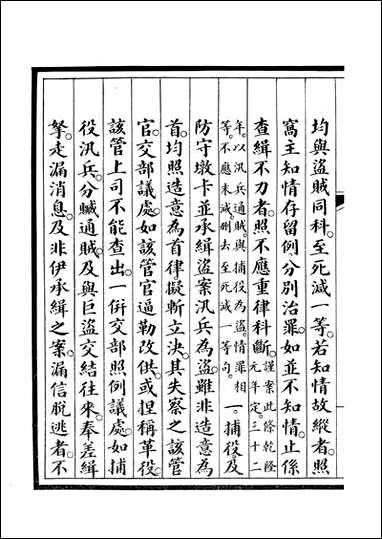 均與盜賊同科。至死減一等。若知情故縱者。照
窩主知情存留例。分別治罪。如並不知情。止係
查緝不力者。照不應重律科斷。謹案此條乾隆元年定。三十二
年。以汛兵通賊與捕役為盜。情罪相等。不應末減。刪去至死減一等句。一。捕役及
防守墩卡並承緝盜案汛兵為盜。雖非造意為
首。均照造意為首律擬斬立決。其失察之該管
官。交部議處。如該管官逼勒改供。或捏稱革役。
該管上司不能查出。一併交部照例議處。如捕
役汛兵。分贓通賊。及與巨盜交結往來。奉差緝
拏。走漏消息。及非伊承緝之案。漏信脫逃者。不